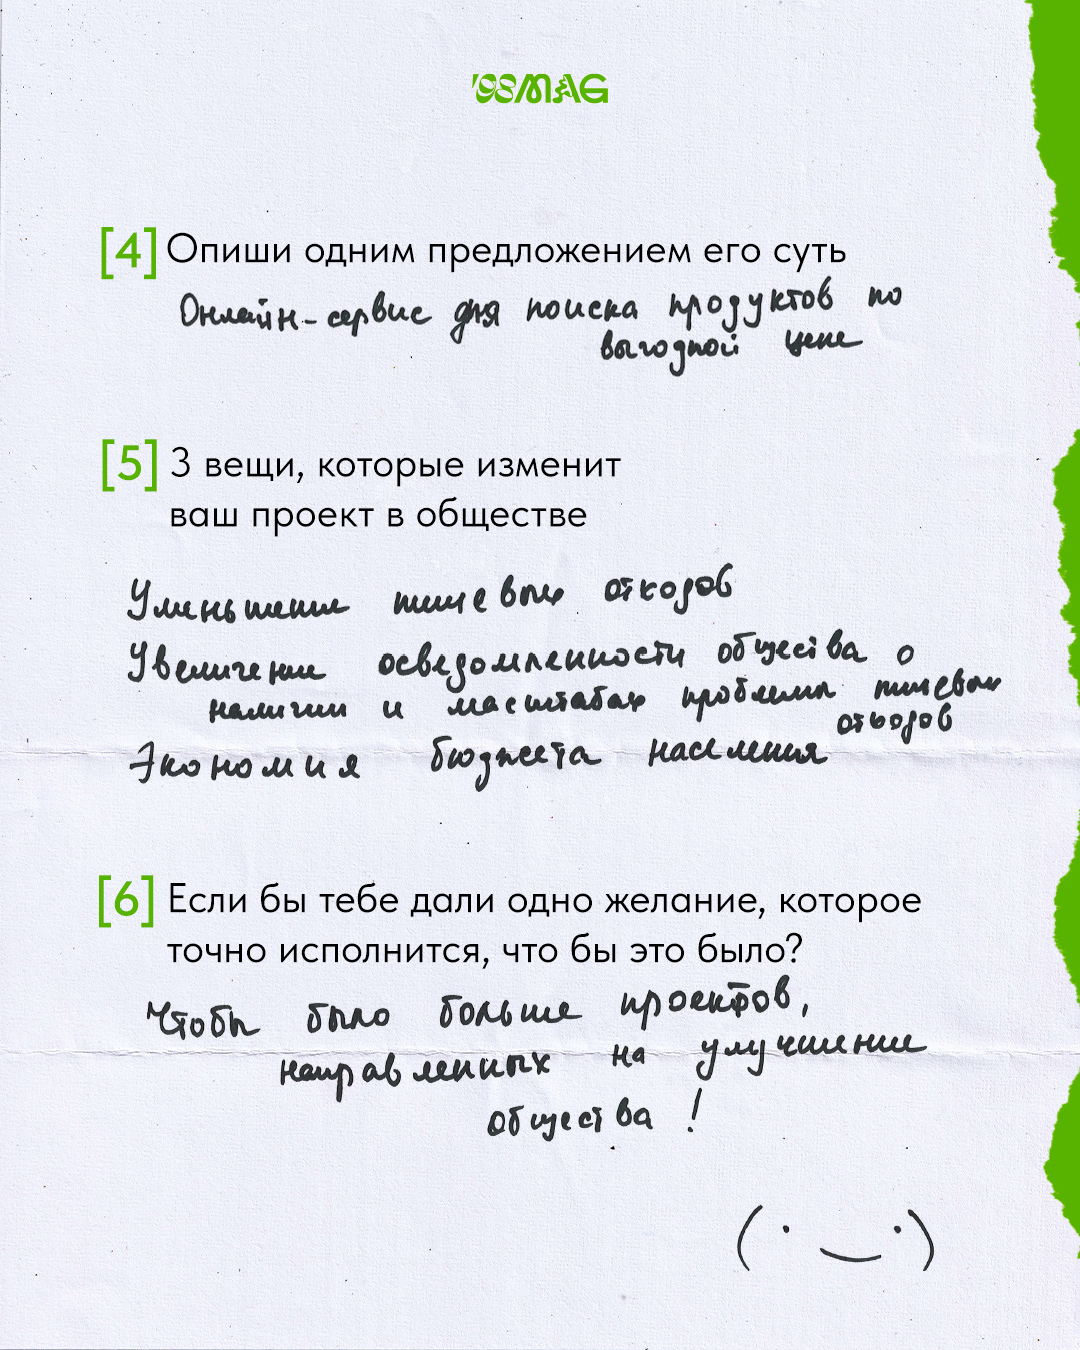 '98MAG
[4] Опиши одним предложением его суть
Онлайн-сервис для поиска продуктов по
выгодной цене
[5] 3 вещи, которые изменит
ваш проект в обществе
Уменьшение пищевых отходов
Увеличение осведомленности общества о
наличии и масштабах проблемы пищевых
отходов
Экономия бюджета населения
[6] Если бы тебе дали одно желание, которое
точно исполнится, что бы это было?
Чтобы было больше проектов,
направленных на улучшение
общества!